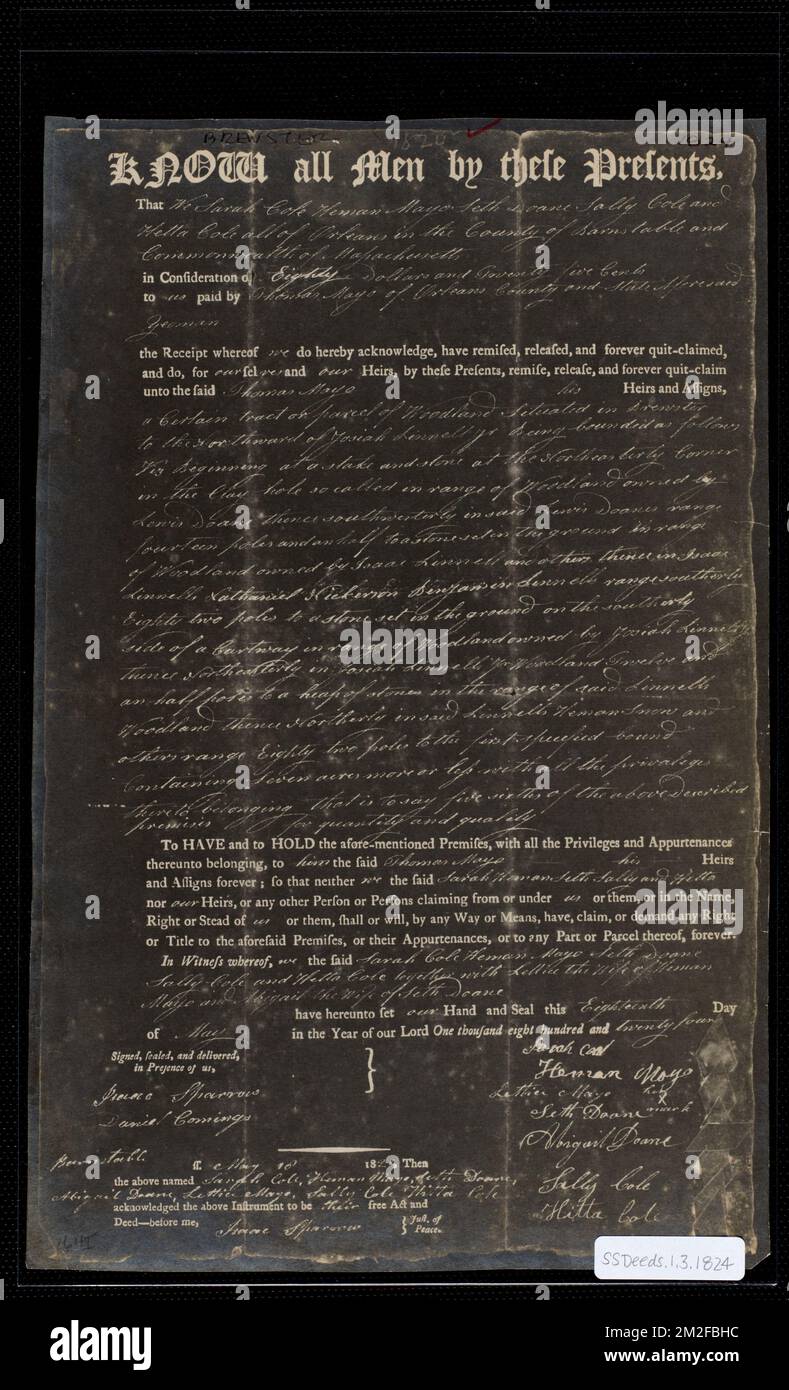 BREWSTER 1824
KNOW all Men by theſe Preſents,
That We Sarah Cole Heman Mayo Seth Doane Sally Cole and
Hitta Cole all of Orleans in the County of Barnstable and
Commonwealth of Massachusetts
in Conſideration of Eighty Dollars and Twenty five Cents
to us paid by Thomas Mayo of Orleans County and State Aforesaid
Yeoman
the Receipt whereof we do hereby acknowledge, have remiſed, releaſed, and forever quit-claimed,
and do, for ourſelves and our Heirs, by theſe Preſents, remiſe, releaſe, and forever quit-claim
unto the ſaid Thomas Mayo his Heirs and Aſſigns,
a Certain tract or parcel of Woodland Situated in Brewster
to the Northward of Josiah Linnell Jr Being bounded as follows
Viz Beginning at a stake and stone at the Northeasterly Corner
in the Clay hole so called in range of Woodland owned by
Lewis Doane thence southwesterly in said Lewis Doanes range
fourteen poles and an half to a stone set in the ground in range
of Woodland owned by Isaac Linnell and others thence in Isaac
Linnells Nathaniel Nickerson Benjamin Linnells range southerly
Eighty two poles to a stone set in the ground on the southerly
side of a Cartway in range of Woodland owned by Josiah Linnell Jr
thence Northeasterly in Josiah Linnells Jr Woodland Twelve and
an half poles to a heap of stones in the range of said Linnells
Woodland thence Northerly in said Linnells Heman Snow and
others range Eighty two poles to the first specified bound
Containing seven acres more or less with all the privaleges
thereto belonging that is to say five sixths of the above described
premises for quantity and quality
To HAVE and to HOLD the afore-mentioned Premiſes, with all the Privileges and Appurtenances
thereunto belonging, to him the ſaid Thomas Mayo his Heirs
and Aſſigns forever; ſo that neither we the ſaid Sarah Heman Seth Sally and Hitta
nor our Heirs, or any other Perſon or Perſons claiming from or under us or them, or in the Name,
Right or Stead of us or them, ſhall or will, by any Way or Means, have, claim, or demand any Right
or Title to the aforeſaid Premiſes, or their Appurtenances, or to any Part or Parcel thereof, forever.
In Witneſs whereof, we the ſaid Sarah Cole Heman Mayo Seth Doane
Sally Cole and Hitta Cole together with Lettice the Wife of Heman
Mayo and Abigail the Wife of Seth Doane
have hereunto ſet our Hand and Seal this Eighteenth Day
of May in the Year of our Lord One thouſand eight hundred and twenty four
Signed, ſealed, and delivered,
in Preſence of us,
Isaac Sparrow
Daniel Comings
Sarah Cole
Heman Mayo
Lettice Mayo her X mark
Seth Doane
Abigail Doane
Sally Cole
Hitta Cole
Barnstable ſſ. May 18 1824 Then
the above named Sarah Cole, Heman Mayo, Seth Doane,
Abigail Doane, Lettice Mayo, Sally Cole Hitta Cole
acknowledged the above Inſtrument to be their free Act and
Deed—before me, Isaac Sparrow Juſt. of Peace.
SSDeeds.1.3.1824
alamy
Image ID: 2M2FBHC
www.alamy.com